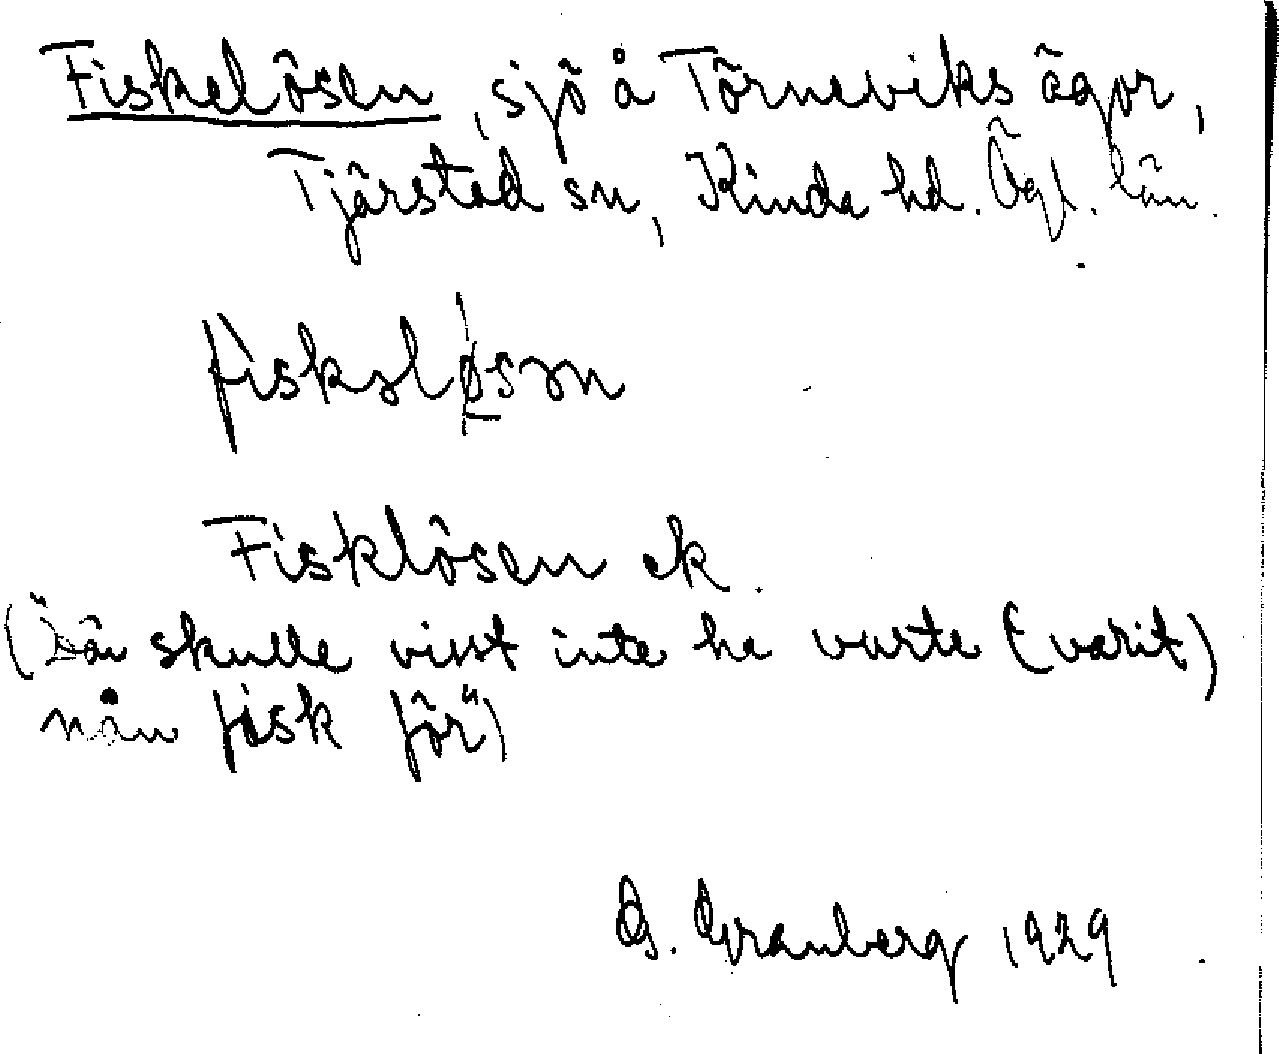 Fiskelösen, sjö å Törneviks ägor,
Tjärstad sn, Kinda hd. Ögl. län.
Fisklösen ek.
("Dän skulle visst inte ha vurte (varit)
nån fisk för")
G. Granberg 1929